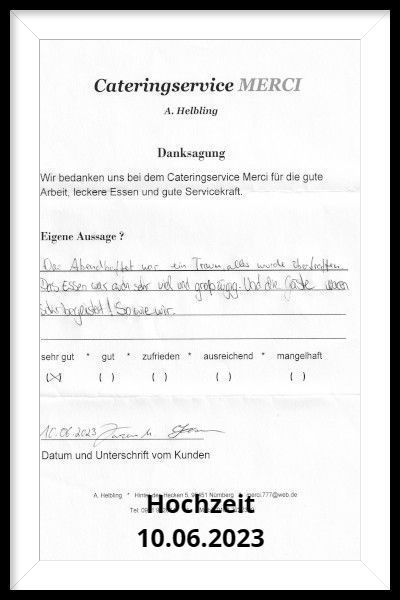 Cateringservice MERCI
A. Helbling
Danksagung
Wir bedanken uns bei dem Cateringservice Merci für die gute
Arbeit, leckere Essen und gute Servicekraft.
Eigene Aussage ?
Das Abendbuffet war ein Traum, alles wurde übertroffen.
Das Essen war auch sehr viel und großzügig. Und die Gäste waren
sehr begeistert! Sowie wir.
sehr gut * gut * zufrieden * ausreichend * mangelhaft
(X) ( ) ( ) ( ) ( )
10.06.2023
Datum und Unterschrift vom Kunden
A. Helbling * Hinter den Hecken 5, Nürnberg * merci.777@web.de
Hochzeit
10.06.2023